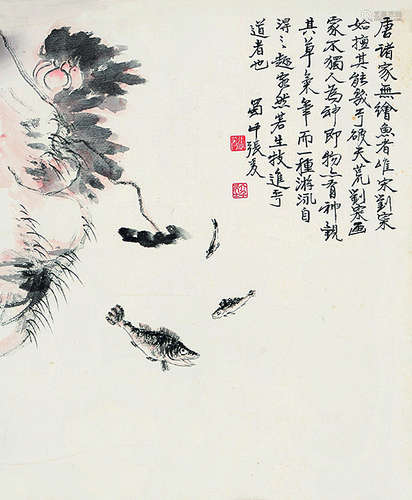 唐諸家無繪魚者唯宋劉寀
始擅其能幾乎破天荒劉寀畫
家不獨人為神即物亦有神觀
其草率筆而一種游泳自
得之趣宛然若生技進乎
道者也
蜀人張爰